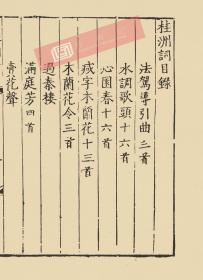 桂洲詞目錄
法駕導引曲三首
水調歌頭十六首
沁園春十六首
減字木蘭花十三首
木蘭花令三首
過秦樓
滿庭芳四首
賣花聲